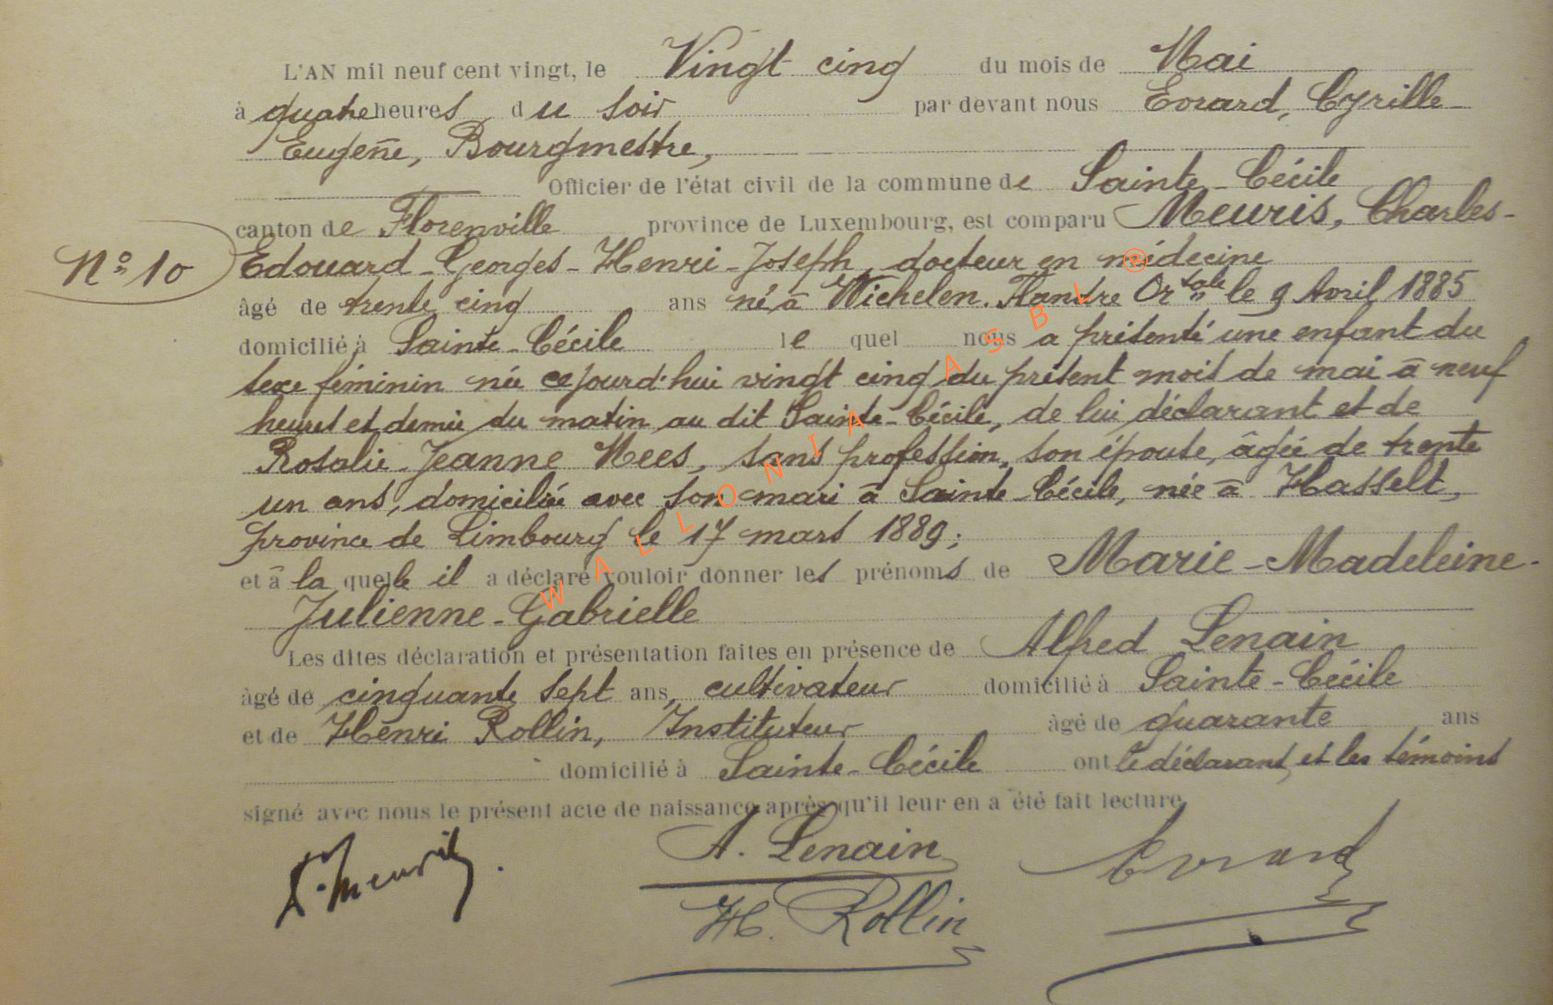 L'AN mil neuf cent vingt, le Vingt cinq du mois de Mai
à quatre heures du soir par devant nous Evrard, Cyrille
Eugène, Bourgmestre,
Officier de l'état civil de la commune de Sainte-Cécile
canton de Florenville province de Luxembourg, est comparu Meuris, Charles-
N° 10 Edouard-Georges-Henri-Joseph, docteur en médecine
âgé de trente cinq ans né à Wichelen. Flandre Ortale le 9 Avril 1885
domicilié à Sainte-Cécile le quel nous a présenté une enfant du
sexe féminin née ce jourd'hui vingt cinq du présent mois de mai à neuf
heures et demie du matin au dit Sainte-Cécile, de lui déclarant et de
Rosalie-Jeanne Nees, sans profession, son épouse, âgée de trente
un ans, domiciliée avec son mari à Sainte-Cécile, née à Hasselt,
province de Limbourg le 17 mars 1889;
et à la quelle il a déclaré vouloir donner les prénoms de Marie-Madeleine-
Julienne-Gabrielle
Les dites déclaration et présentation faites en présence de Alfred Lenain
âgé de cinquante sept ans, cultivateur domicilié à Sainte-Cécile
et de Henri Rollin, Instituteur âgé de quarante ans
domicilié à Sainte-Cécile ont le déclarant, et les témoins
signé avec nous le présent acte de naissance après qu'il leur en a été fait lecture
Meuris. A. Lenain Evrard
H. Rollin
WALLONIA ASBL ®